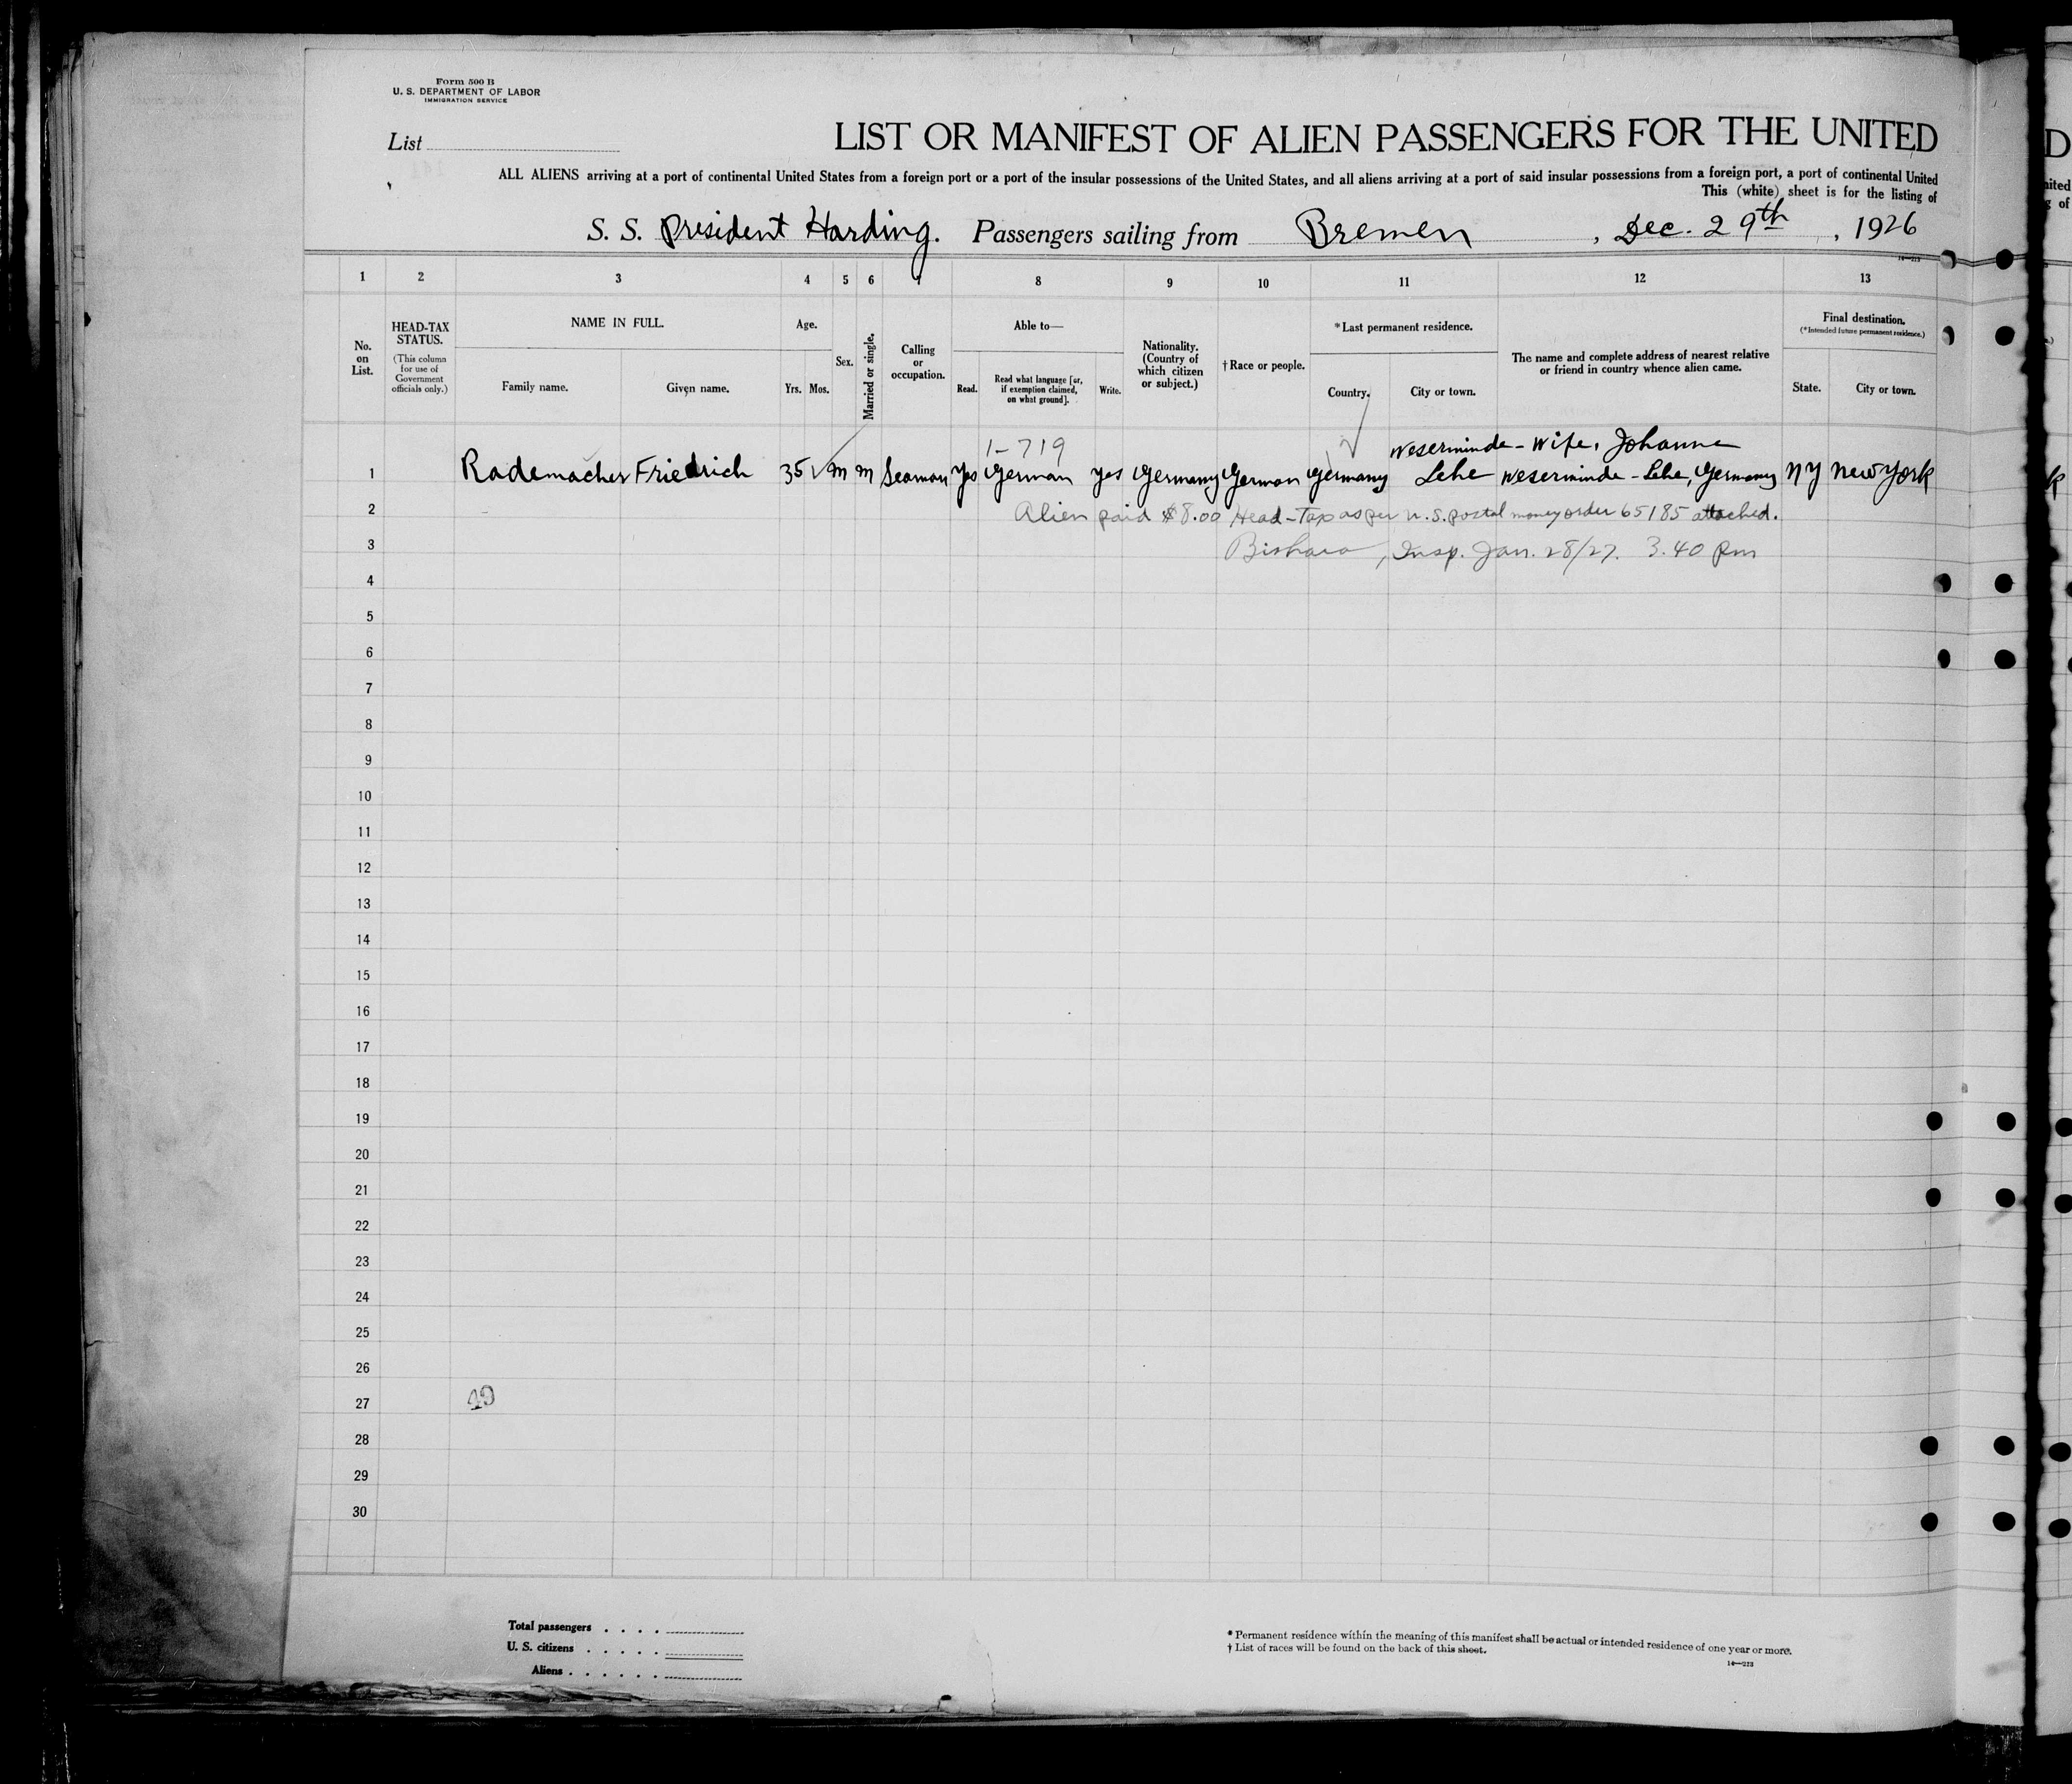 Form 500 B
U. S. DEPARTMENT OF LABOR
IMMIGRATION SERVICE
List
LIST OR MANIFEST OF ALIEN PASSENGERS FOR THE UNITED
ALL ALIENS arriving at a port of continental United States from a foreign port or a port of the insular possessions of the United States, and all aliens arriving at a port of said insular possessions from a foreign port, a port of continental United
This (white) sheet is for the listing of
S. S. President Harding. Passengers sailing from Bremen, Dec. 29th, 1926
1 2 3 4 5 6 7 8 9 10 11 12 13
No. on List.
HEAD-TAX STATUS.
(This column for use of Government officials only.)
NAME IN FULL.
Family name. Given name.
Age.
Yrs. Mos.
Sex.
Married or single.
Calling or occupation.
Able to—
Read. Read what language [or, if exemption claimed, on what ground]. Write.
Nationality. (Country of which citizen or subject.)
†Race or people.
*Last permanent residence.
Country. City or town.
The name and complete address of nearest relative or friend in country whence alien came.
Final destination.
(*Intended future permanent residence.)
State. City or town.
1-719 Weserminde - Wife, Johanne
1 Rademacher Friedrich 35 M M Seaman Yes German Yes Germany German Germany Lehe Weserminde - Lehe, Germany NY New York
2 Alien paid $8.00 Head-Tax as per U.S. postal money order 65185 attached.
3 Insp. Jan. 28/27. 3.40 pm
4
5
6
7
8
9
10
11
12
13
14
15
16
17
18
19
20
21
22
23
24
25
26
27 49
28
29
30
Total passengers
U. S. citizens
Aliens
* Permanent residence within the meaning of this manifest shall be actual or intended residence of one year or more.
† List of races will be found on the back of this sheet.